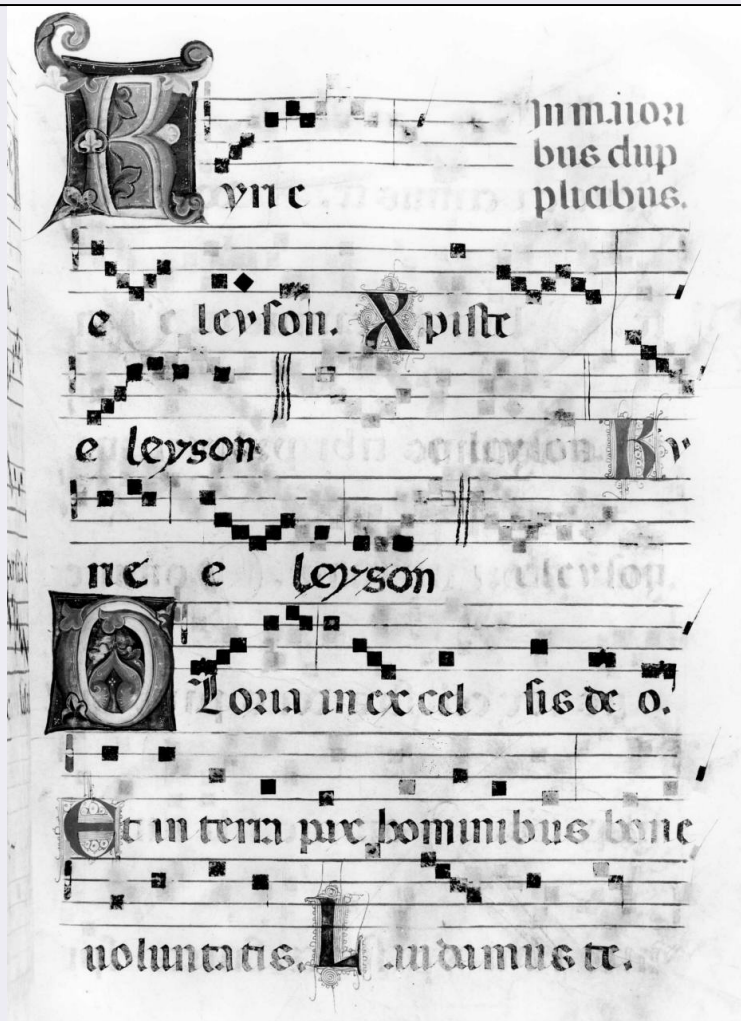 Kyrie
In maiori
bus dup
plicibus.
e e leyson. Xpiste
e leyson Ky
rie e leyson
GLoria in excel sis de o.
Et in terra pax hominibus bone
uoluntatis. Laudamus te.